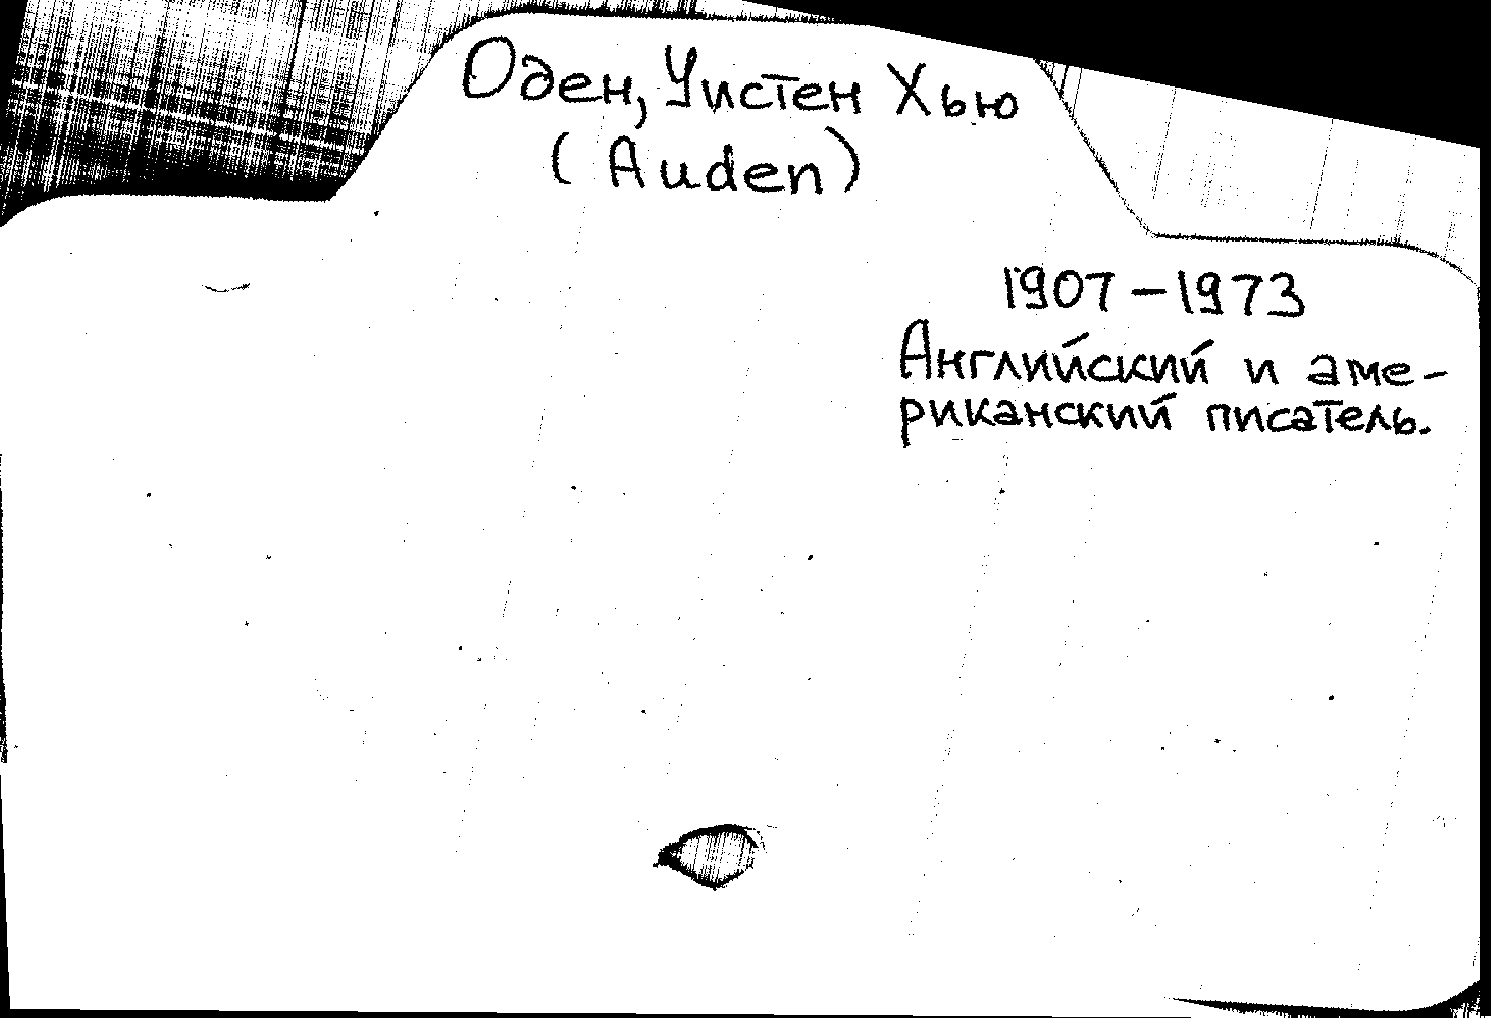 Оден, Уистен Хью
(Auden)
1907 – 1973
Английский и аме-
риканский писатель.